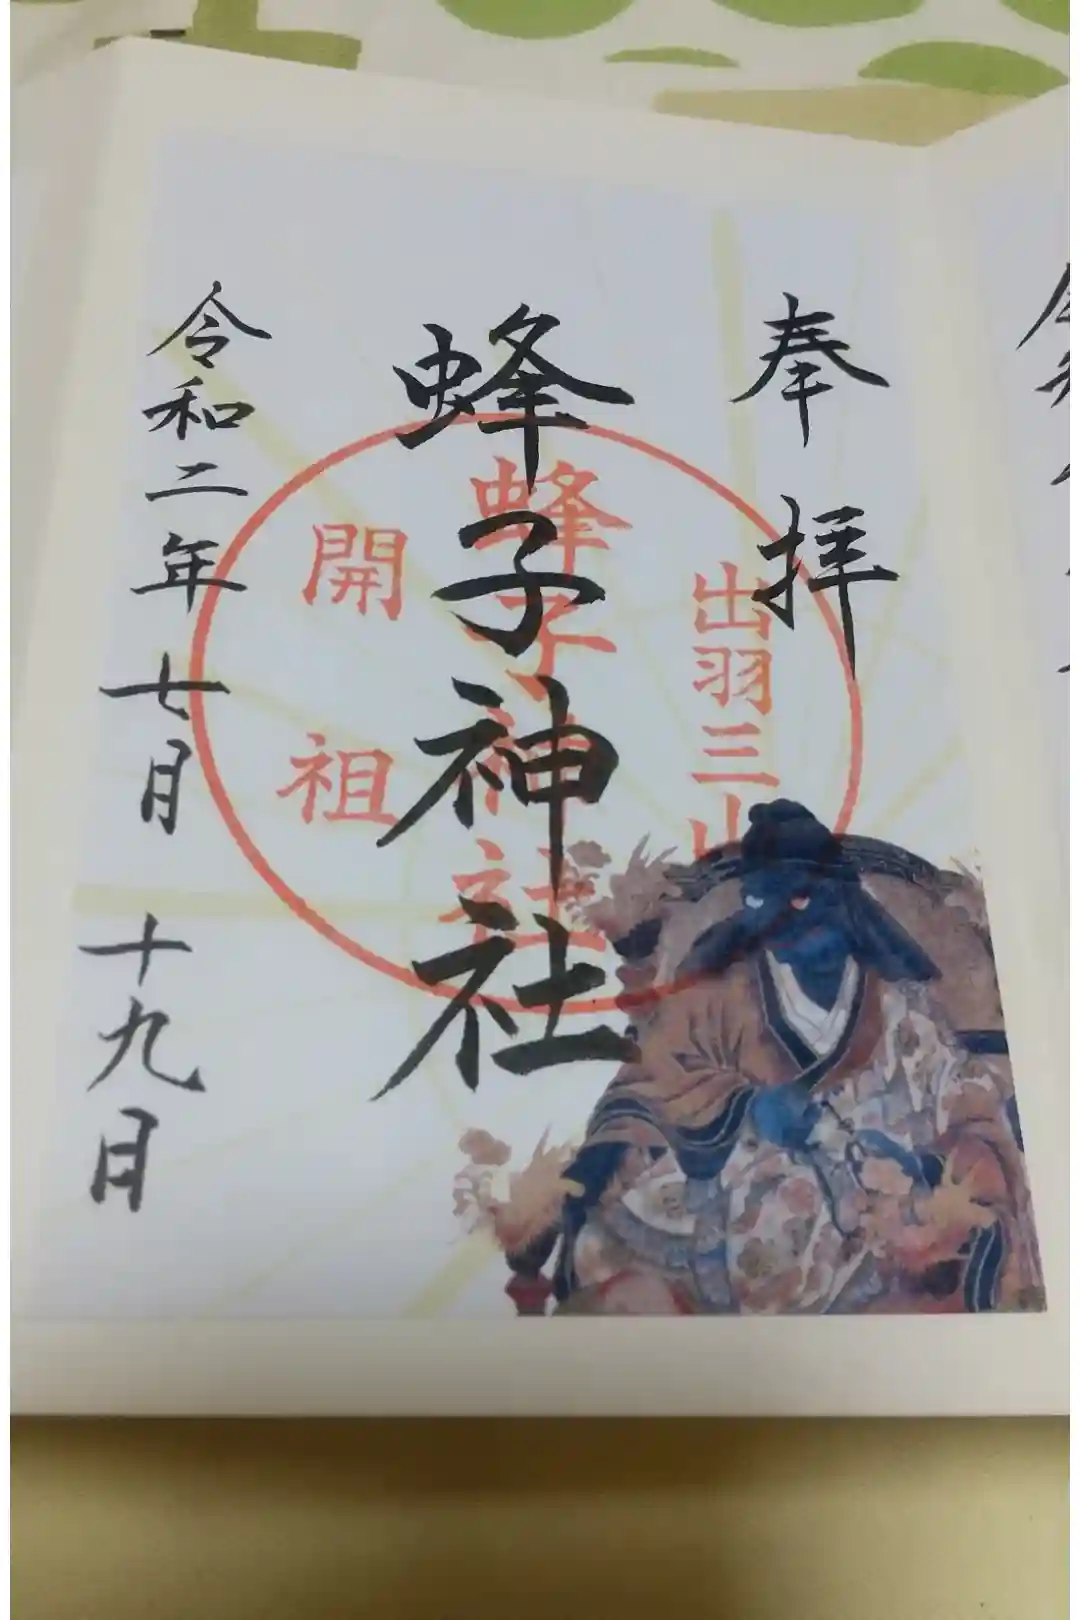 奉拝
出羽三山
蜂子神社
蜂子神社
開祖
令和二年七月十九日